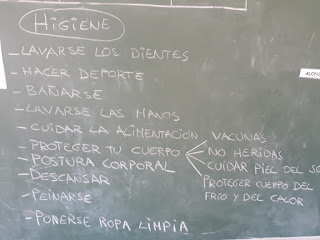 HIGIENE
- LAVARSE LOS DIENTES
- HACER DEPORTE
- BAÑARSE
- LAVARSE LAS MANOS
- CUIDAR LA ALIMENTACIÓN
- PROTEGER TU CUERPO
VACUNAS
NO HERIDAS
CUIDAR PIEL DEL
PROTEGER CUERPO DEL
FRIO Y DEL CALOR
- POSTURA CORPORAL
- DESCANSAR
- PEINARSE
- PONERSE ROPA LIMPIA